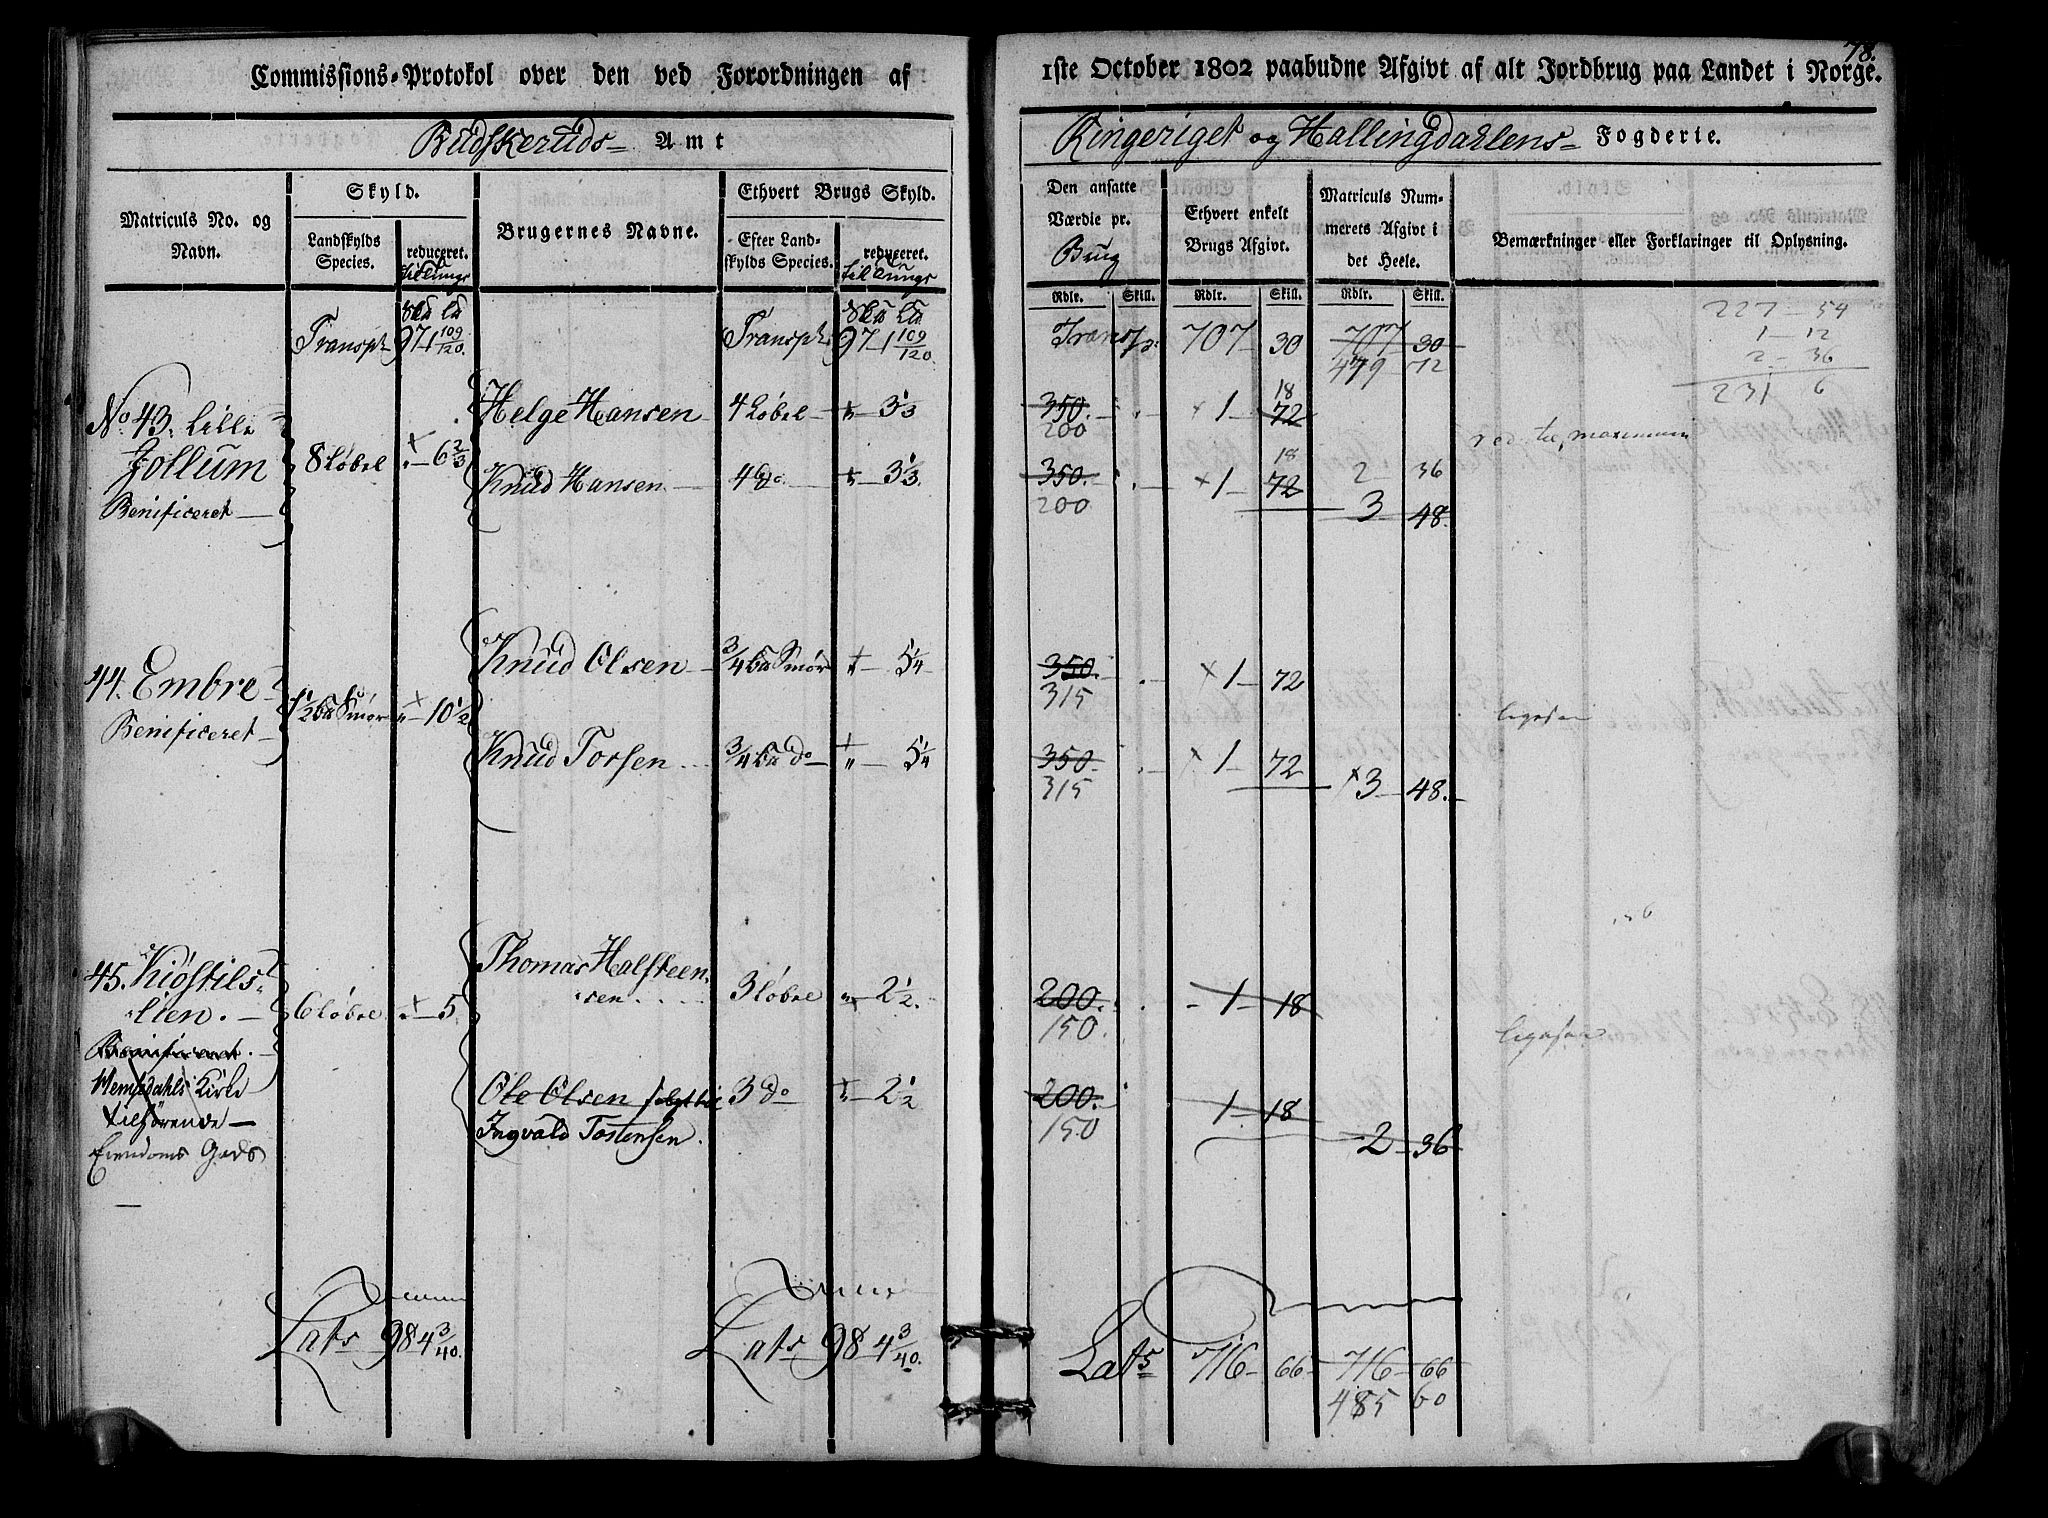 78.
Commissions-Protokol over den ved Forordningen af
1ste October 1802 paabudne Afgivt af alt Jordbrug paa Landet i Norge.
Budskeruds Amt
Ringeriget og Hallingdahlens Fogderie.
Matriculs No. og Navn.
Skyld.
Landskylds Species.
reduceret.
Brugernes Navne.
Ethvert Brugs Skyld.
Efter Landskylds Species.
reduceret.
Den ansatte Værdie pr. Brug
Ethvert enkelt Brugs Afgivt.
Matriculs Nummerets Afgivt i det Heele.
Bemærkninger eller Forklaringer til Oplysning.
Rdlr. Skill. Rdlr. Skill. Rdlr. Skill.
Transpt 97 1 109/120. Transpt 97 1 109/120. Transp: 707 30 707 30
479 72
227 - 54
1 - 12
2 - 36
231 6
No. 43. Lille Helge Hansen 4 Løbel 3 1/3 350. 1 72 18
200
Jollum 8 Løbel 6 2/3 Knud Hansen 4 do. 3 1/3. 350. 1 72 18 2 36
red. til maximum
Benificeret 200 3 48.
44. Embre 1 1/2 Smør 10 1/2 Knud Olsen 3/4 Smør 5 1/4 350. 1 72
315
Benificeret Knud Torsen 3/4 do 5 1/4 350. 1 72 3 48.
315
ligesaa
45. Kiøstils- Thomas Halsteen-
lien. 6 Løbel 5 sen 3 Løbel 2 1/2. 200. 1 18
150.
Benificeret.
ligesaa
Hemsedahls Kirke Ole Olsen 3 do 2 1/2 200. 1 18
tilhørende Ingvald Tostensen. 150 2 36
Eiendoms Gods
Lats 98 4 3/40. Lats 98 4 3/40. Lats 716 66 716 66
485 60